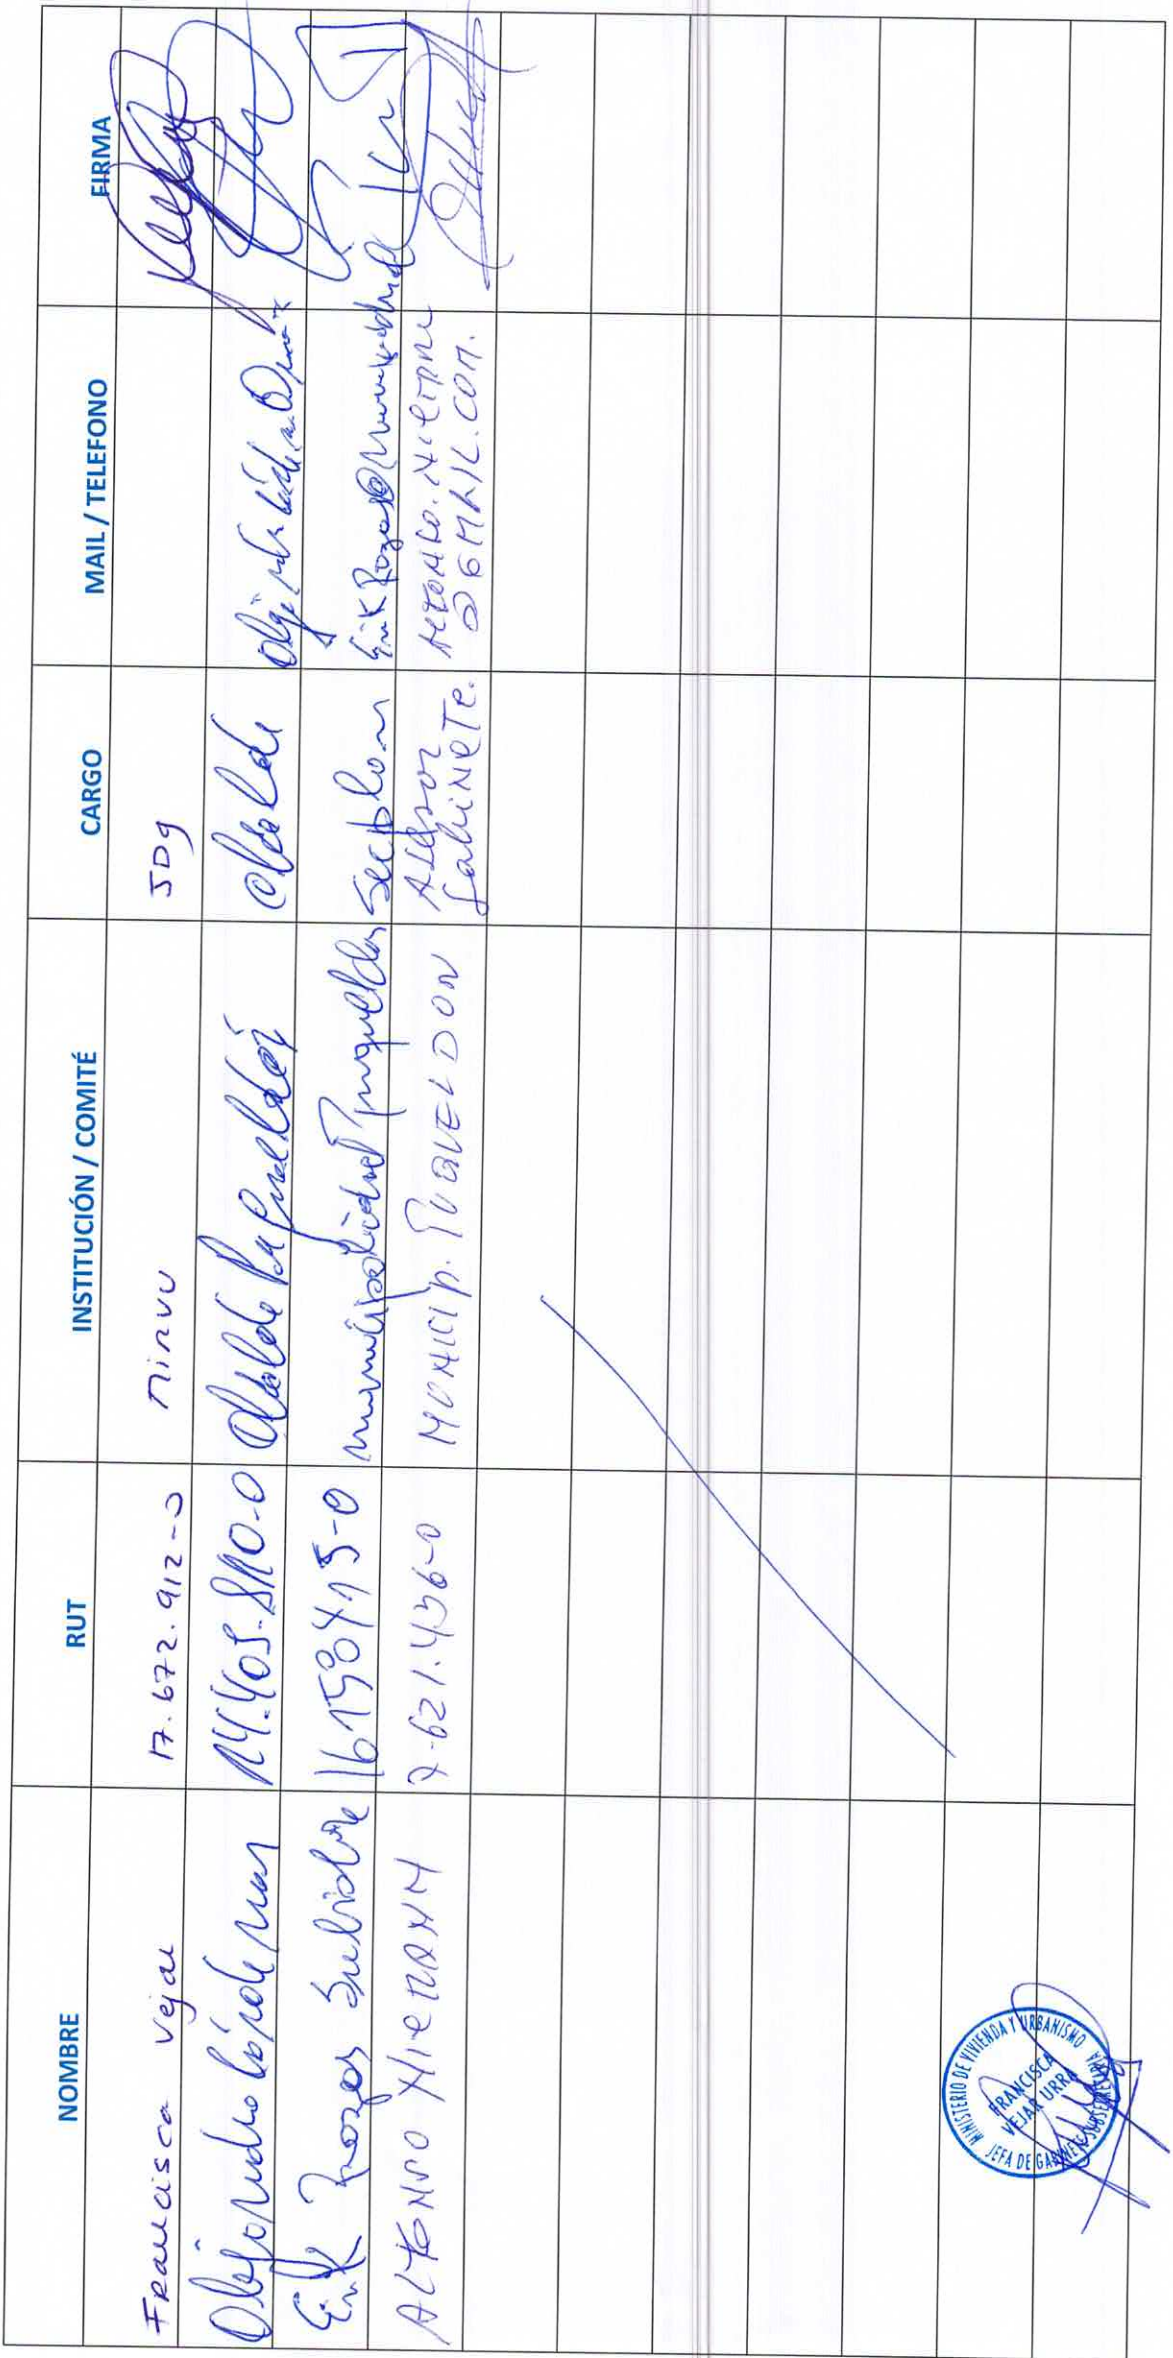 NOMBRE RUT INSTITUCIÓN / COMITÉ CARGO MAIL / TELEFONO FIRMA
Francisca Vejar 17.672.912-0 Minvu JDG
14.405.810-0 Alcalde Puqueldón Alcalde
Erik Rozas 16159041 5-0 municipalidad Puqueldon Secplan
ALFONSO NIEMANN 7-621.456-0 MUNICIP. PUQUELDON Asesor
GabineTe.
@GMAIL.COM.
MINISTERIO DE VIVIENDA Y URBANISMO
FRANCISCA
VEJAR URRA
JEFA DE GABINETE SUBSECRETARIA